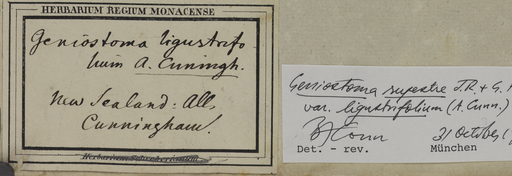 HERBARIUM REGIUM MONACENSE
Geniostoma ligustrifo
lium A. Cuningh.
New Sealand: All.
Cunningham.
Herbarium Schreberianum.
Geniostoma rupestre J.R. + G.
var. ligustrifolium (A. Cunn.)
BJConn
31 October
Det. - rev. München